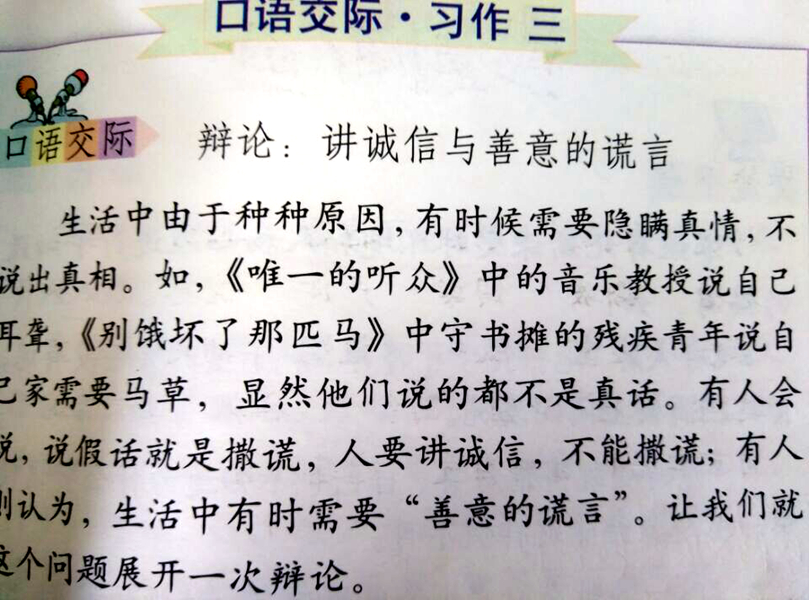 口语交际·习作 三
口语交际
辩论：讲诚信与善意的谎言
生活中由于种种原因，有时候需要隐瞒真情，不
说出真相。如，《唯一的听众》中的音乐教授说自己
耳聋，《别饿坏了那匹马》中守书摊的残疾青年说自
己家需要马草，显然他们说的都不是真话。有人会
说，说假话就是撒谎，人要讲诚信，不能撒谎；有人
则认为，生活中有时需要“善意的谎言”。让我们就
这个问题展开一次辩论。